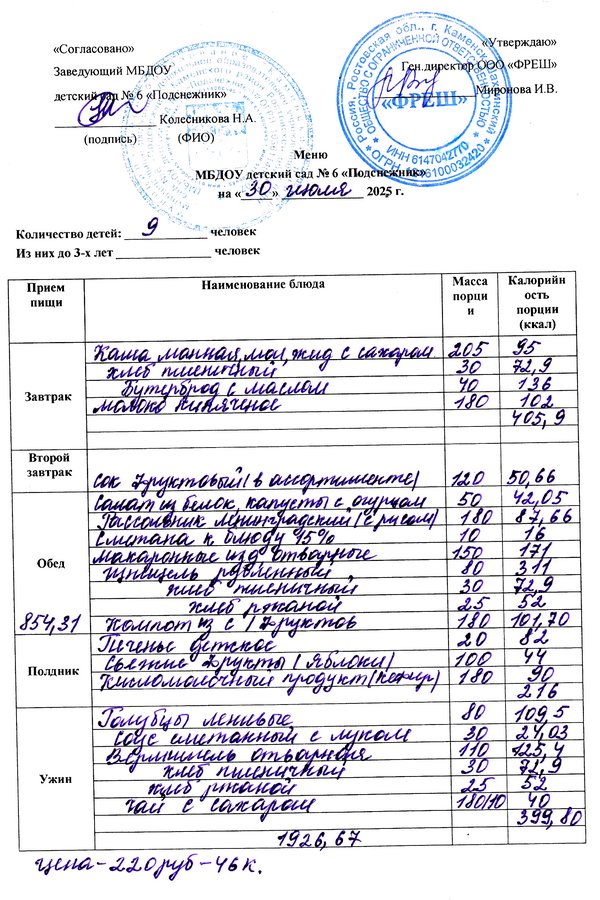 «Согласовано»
«Утверждаю»
Заведующий МБДОУ
Ген.директор ООО «ФРЕШ»
детский сад № 6 «Подснежник»
Миронова И.В.
Колесникова Н.А.
(подпись) (ФИО)
Россия, Ростовская обл., г. Каменск-Шахтинский
ОБЩЕСТВО С ОГРАНИЧЕННОЙ ОТВЕТСТВЕННОСТЬЮ
«ФРЕШ»
ИНН 6147042770
Меню
МБДОУ детский сад № 6 «Подснежник»
на «30» июля 2025 г.
Количество детей: 9 человек
Из них до 3-х лет человек
Прием пищи Наименование блюда Масса порции Калорийность порции (ккал)
Завтрак
Каша манная, мол, жид с сахаром 205 95
хлеб пшеничный 30 72,9
Бутерброд с маслом 40 136
молоко кипяченое 180 102
405,9
Второй завтрак
сок фруктовый (в ассортименте) 120 50,66
Обед
Салат из белок. капусты с огурцом 50 42,05
Рассольник ленинградский (с рисом) 180 87,66
Сметана к блюду 15% 10 16
макаронные изд отварные 150 171
Шницель рубленный 80 311
хлеб пшеничный 30 72,9
хлеб ржаной 25 52
854,31 Компот из с/фруктов 180 101,70
Полдник
Печенье детское 20 82
Свежие фрукты (яблоки) 100 44
Кисломолочный продукт (кефир) 180 90
216
Ужин
Голубцы ленивые 80 109,5
Соус сметанный с луком 30 24,03
Вермишель отварная 110 125,4
хлеб пшеничный 30 72,9
хлеб ржаной 25 52
чай с сахаром 180/10 40
399,80
1926,67
цена-220руб-46к.